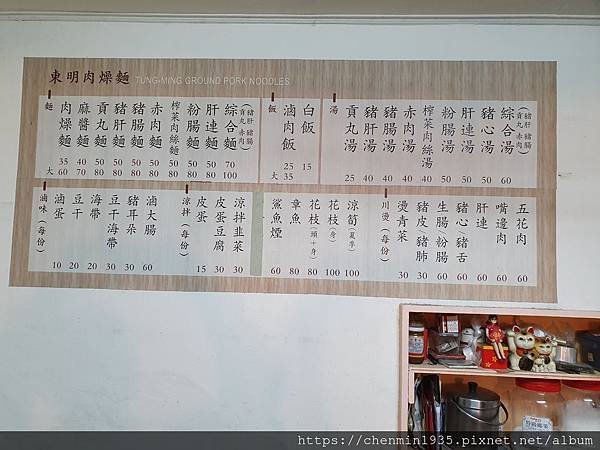 東明肉燥麵 TUNG-MING GROUND PORK NOODLES
麵
肉燥麵 35 大 60
麻醬麵 40 70
貢丸麵 50 80
豬肝麵 50 80
豬腸麵 50 80
赤肉麵 50 80
榨菜肉絲麵 50 80
粉腸麵 50 80
肝連麵 50 80
綜合麵 (豬肝 豬腸 貢丸 赤肉) 70 100
飯
滷肉飯 25 大 35
白飯 15
湯
貢丸湯 25
豬肝湯 40
豬腸湯 40
赤肉湯 40
榨菜肉絲湯 40
粉腸湯 50
肝連湯 50
豬心湯 50
綜合湯 (豬肝 豬腸 貢丸 赤肉) 60
滷味(每份)
滷蛋 10
豆干 20
海帶 20
豆干海帶 30
豬耳朵 30
滷大腸 60
涼拌(每份)
皮蛋 15
皮蛋豆腐 30
涼拌韭菜 30
鯊魚煙 60
章魚 80
花枝(頭+身) 80
花枝(身) 100
涼筍(夏季) 100
川燙(每份)
燙青菜 30
豬皮/豬肺 30
生腸/粉腸 60
豬心/豬舌 60
肝連 60
嘴邊肉 60
五花肉 60
https://chenmin1935.pixnet.net/album